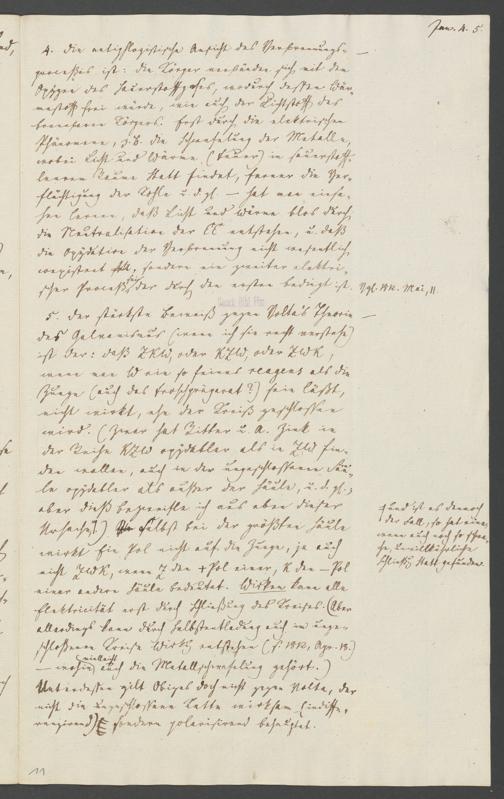 Jan. 4. 5.
4. Die antiphlogistische Ansicht des Verbrennungs-
processes ist: die Körper verbinden sich mit dem
Oxygen des Sauerstoffgases, wodurch dessen Wär-
mestoff frei würde, wie auch der Lichtstoff des
brennbaren Körpers. Erst durch die elektrischen
Phänomene, z.B. die Schwefelung der Metalle,
wobei Licht und Wärme (Feuer) in sauerstoff-
leerem Raume statt findet, ferner die Ver-
flüchtigung der Kohle u.dgl. — hat man einse-
hen lernen, daß Licht und Wärme blos durch
die Neutralisation der EE entstehen, u. daß
die Oxydation der Verbrennung nicht wesentlich
coexistent, sondern ein zweiter elektri-
scher Proceß, der durch den ersten bedingt ist.
Vgl. 1812. Mai, 11.
5. Der stärkste Beweiß gegen Volta's Theorie
des Galvanismus (wenn ich sie recht verstehe)
ist der: daß ZKW, oder KZW, oder ZWK,
wenn man W ein so feines reagens als die
Zunge (auch das Froschpräparat?) sein läßt,
nicht wirkt, ehe der Kreiß geschlossen
wird. (Zwar hat Ritter u. A. Zink in
der Reihe KZW oxydabler als in ZW fin-
den wollen, auch in der ungeschlossenen Säu-
le oxydabler als außer der Säule, u.d.gl.;
aber dieß bezweifle ich aus eben dieser
Ursache.) Selbst bei der größten Säule
wirkt Ein Pol nicht auf die Zunge, ja auch
nicht ZWK, wenn Z den + Pol einer, K den – Pol
einer andern Säule bedeutet. Wirken kann alle
Elektricität erst durch Schließung des Kreises. (Aber
allerdings kann durch Selbstentladung auch im unge-
schlossenen Kreise Wirkg entstehen (s. 1812, Apr. 13.)
— wohin vielleicht auch die Metallschwefelung gehört.)
Unterdessen gilt Obiges doch nicht gegen Volta, der
nicht die ungeschlossene Kette wirksam (indiffe-
renzirend), sondern polarisirend behauptet.
und ist es dennoch
der Fall, so hat eine,
wenn auch noch so schwa-
che, unwillkührliche
Schließg Statt gefunden.
11